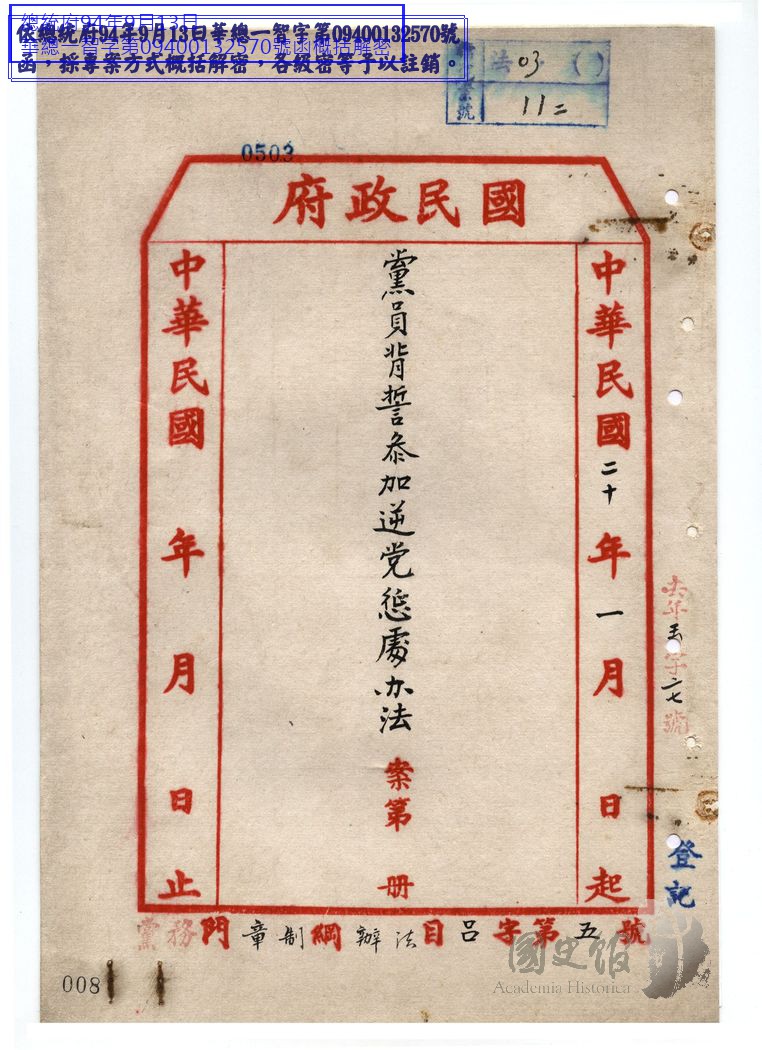 總統府94年9月13日
華總一智字第09400132570號函概括解密
依總統府94年9月13日華總一智字第09400132570號
函，採專案方式概括解密，各級密等予以註銷。
法 03 ( )
號 11二
0503
國民政府
中華民國二十年一月 日起
黨員背誓叅加逆党懲處办法 案第 册
中華民國 年 月 日止
去年玉字六七號
登記
黨務門 章制綱 辦法目 呂字第五號
國史館
Academia Historica
008